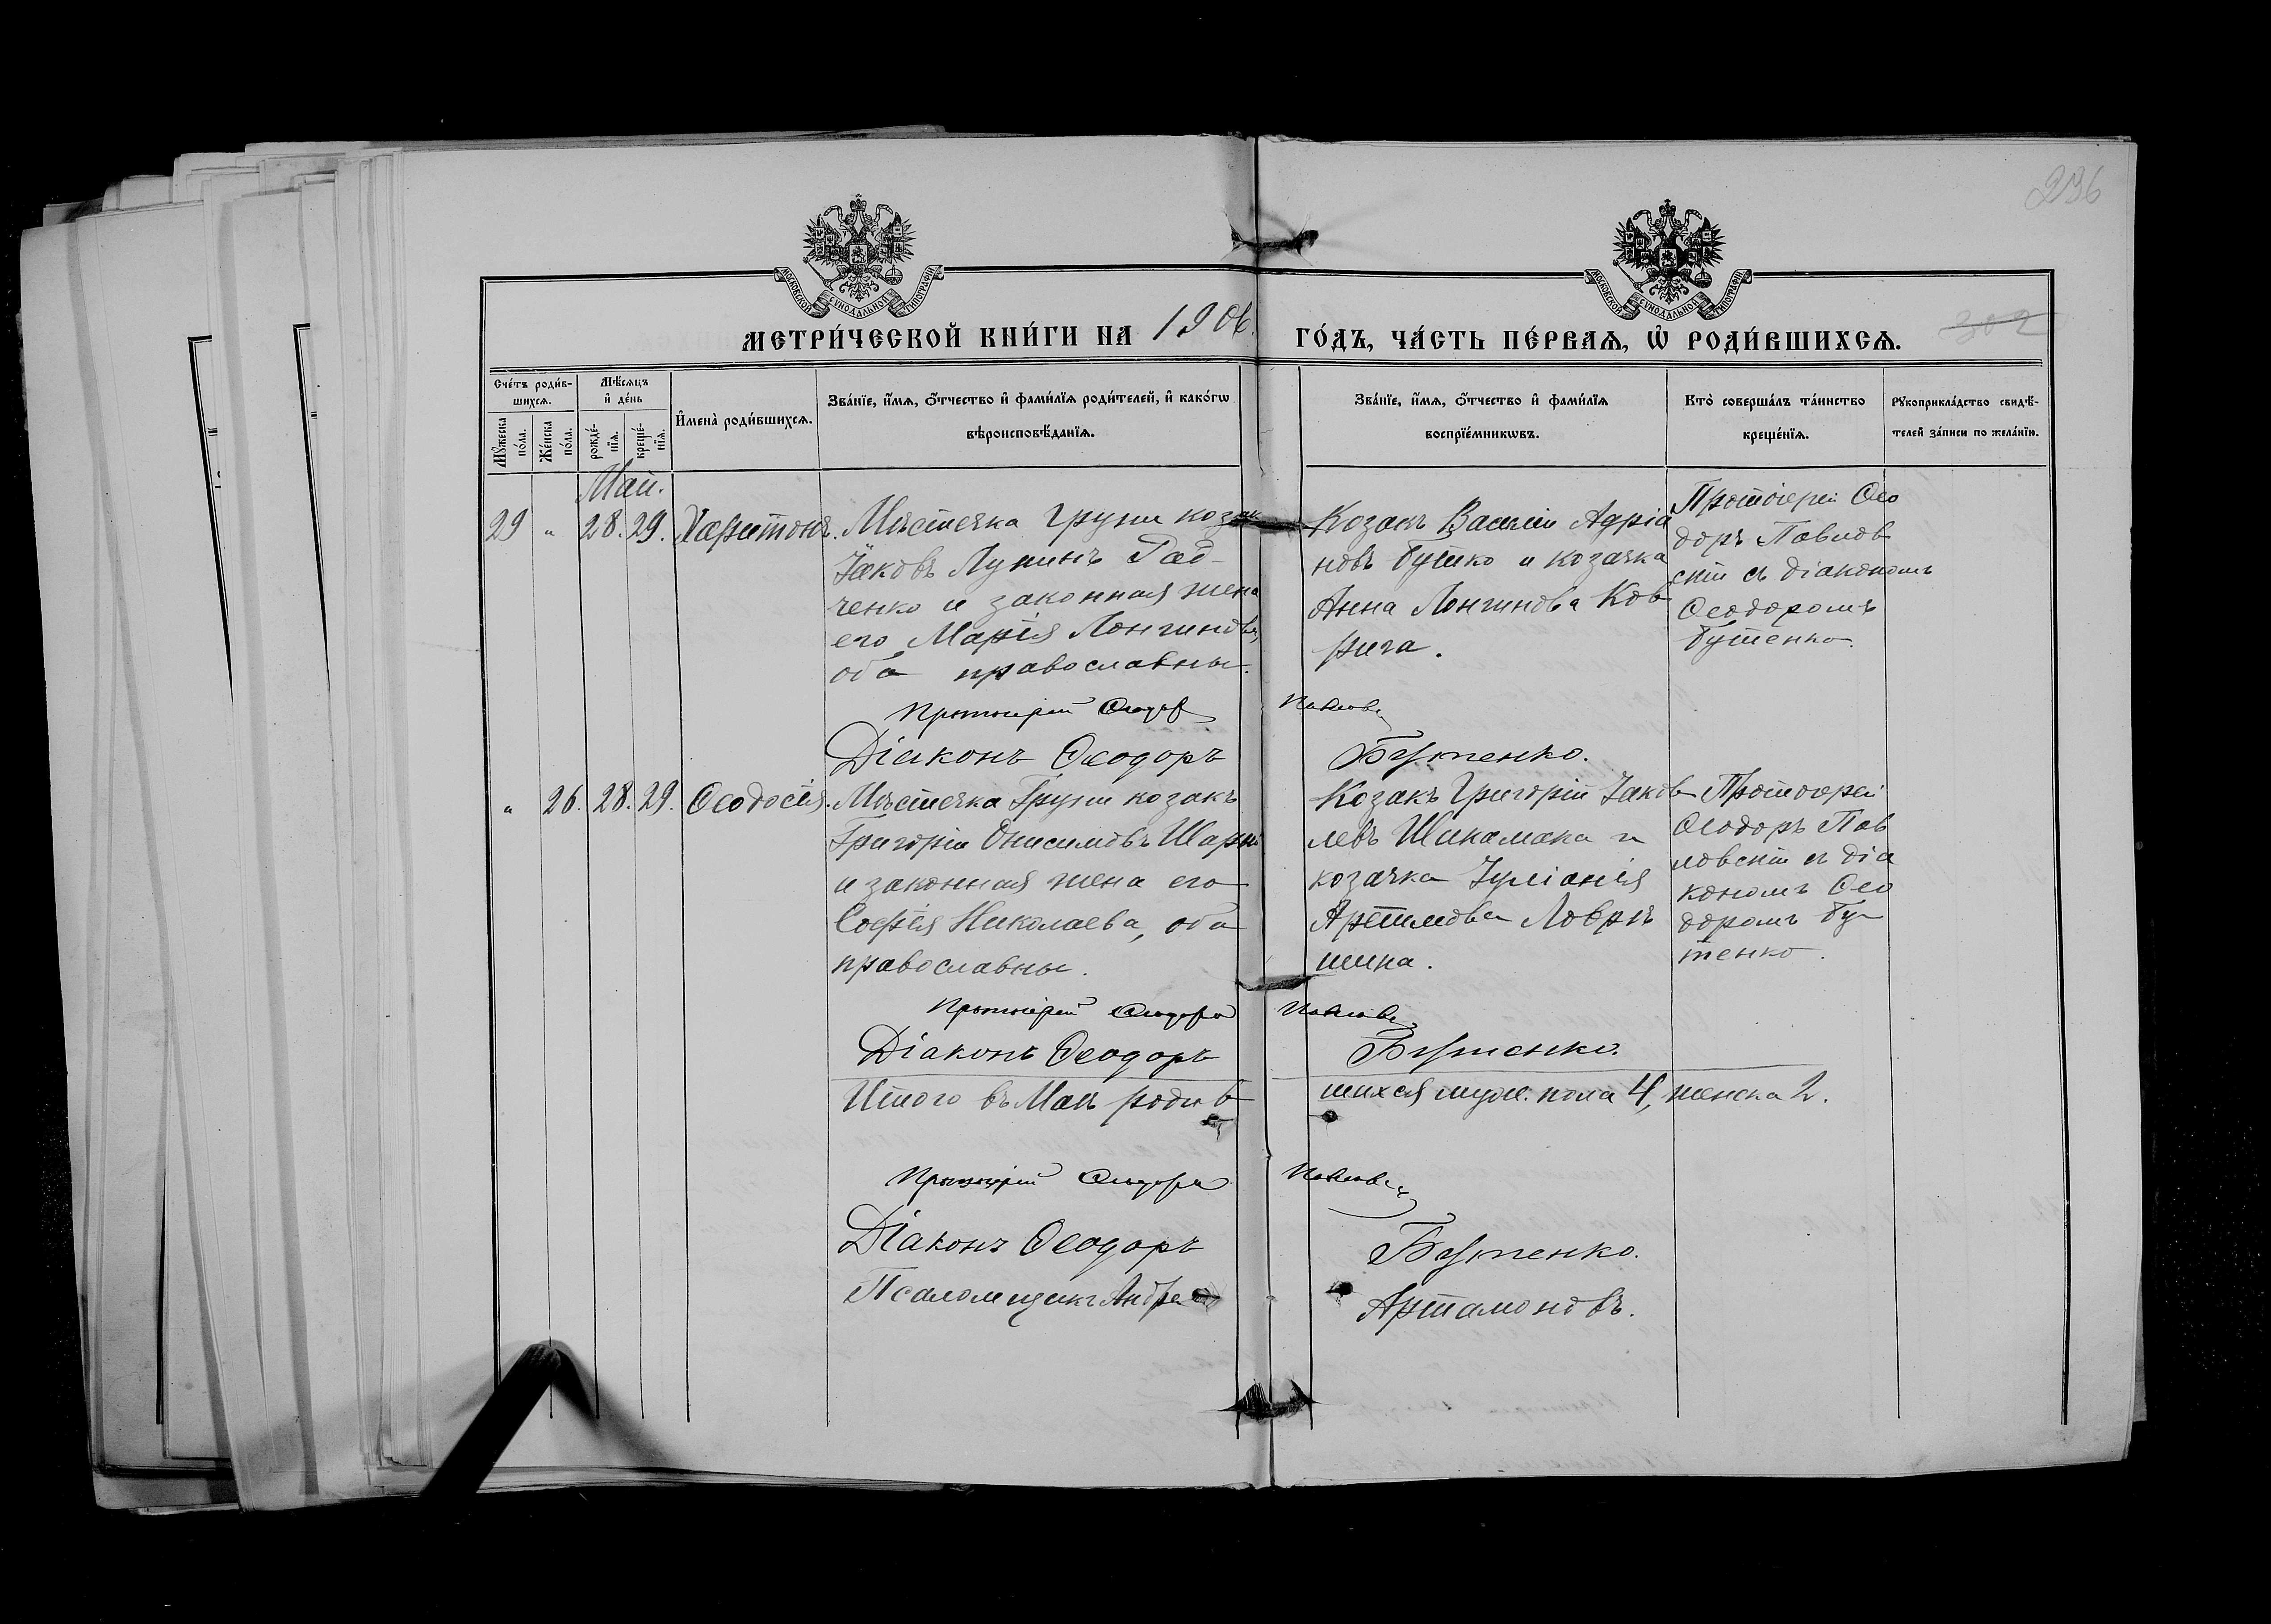 236
МОСКОВСКОЙ СѴНОДАЛЬНОЙ ТИПОГРАФІИ
МОСКОВСКОЙ СѴНОДАЛЬНОЙ ТИПОГРАФІИ
МЕТРИ́ЧЕСКОЙ КНИ́ГИ НА 1906.
ГО́ДЪ, ЧА́СТЬ ПЕ́РВАѦ, Ѡ҆ РОДИ́ВШИХСѦ.
302
Сче́тъ роди́в-
шихсѧ.
Мꙋ́жеска по́ла.
Же́нска по́ла.
Мѣ́сѧцъ
и҆ де́нь
рожде́-
нїѧ.
креще́-
нїѧ.
И҆мена̀ роди́вшихсѧ.
Зва́нїе, и҆́мѧ, ѻ҆́тчество и҆ фами́лїѧ роди́телей, и҆ како́гѡ
вѣроисповѣ́данїѧ.
Зва́нїе, и҆́мѧ, ѻ҆́тчество и҆ фами́лїѧ
воспрїе́мникѡвъ.
Кто̀ соверша́лъ та́инство
креще́нїѧ.
Рꙋкоприкла́дство свидѣ́-
телей за́писи по жела́нїю.
Май.
29 " 28. 29. Харитонъ.
Мѣстечка Груни козак
Іаковъ Лупинъ Рад-
ченко и законная жена
его Марія Лонгинова,
оба православны.
Козакъ Василій Адріа
новъ Бутко и козачка
Анна Лонгинова Ков
рига.
Протоіерей Ѳео
доръ Павлов
скій съ діакономъ
Ѳеодоромъ
Бутенко.
Протоіерей Ѳеодоръ
Діаконъ Ѳеодоръ Бутенко.
" 26. 28. 29. Ѳеодосія.
Мѣстечка Груни козакъ
Григорій Онисимовъ
и законная жена его
Софія Николаева, оба
православны.
Козакъ Григорій Іаков
левъ Шикамака и
козачка Іуліанія
Артемова Лаврѣ
шина.
Протоіерей
Ѳеодоръ Пав
ловскій съ діа
кономъ Ѳео
доромъ Бу
тенко.
Протоіерей Ѳеодоръ
Діаконъ Ѳеодоръ Бутенко.
Итого въ Маѣ родив шихся муж. пола 4, женска 2.
Протоіерей Ѳеодоръ
Діаконъ Ѳеодоръ Бутенко.
Псаломщикъ Андрей Артамоновъ.